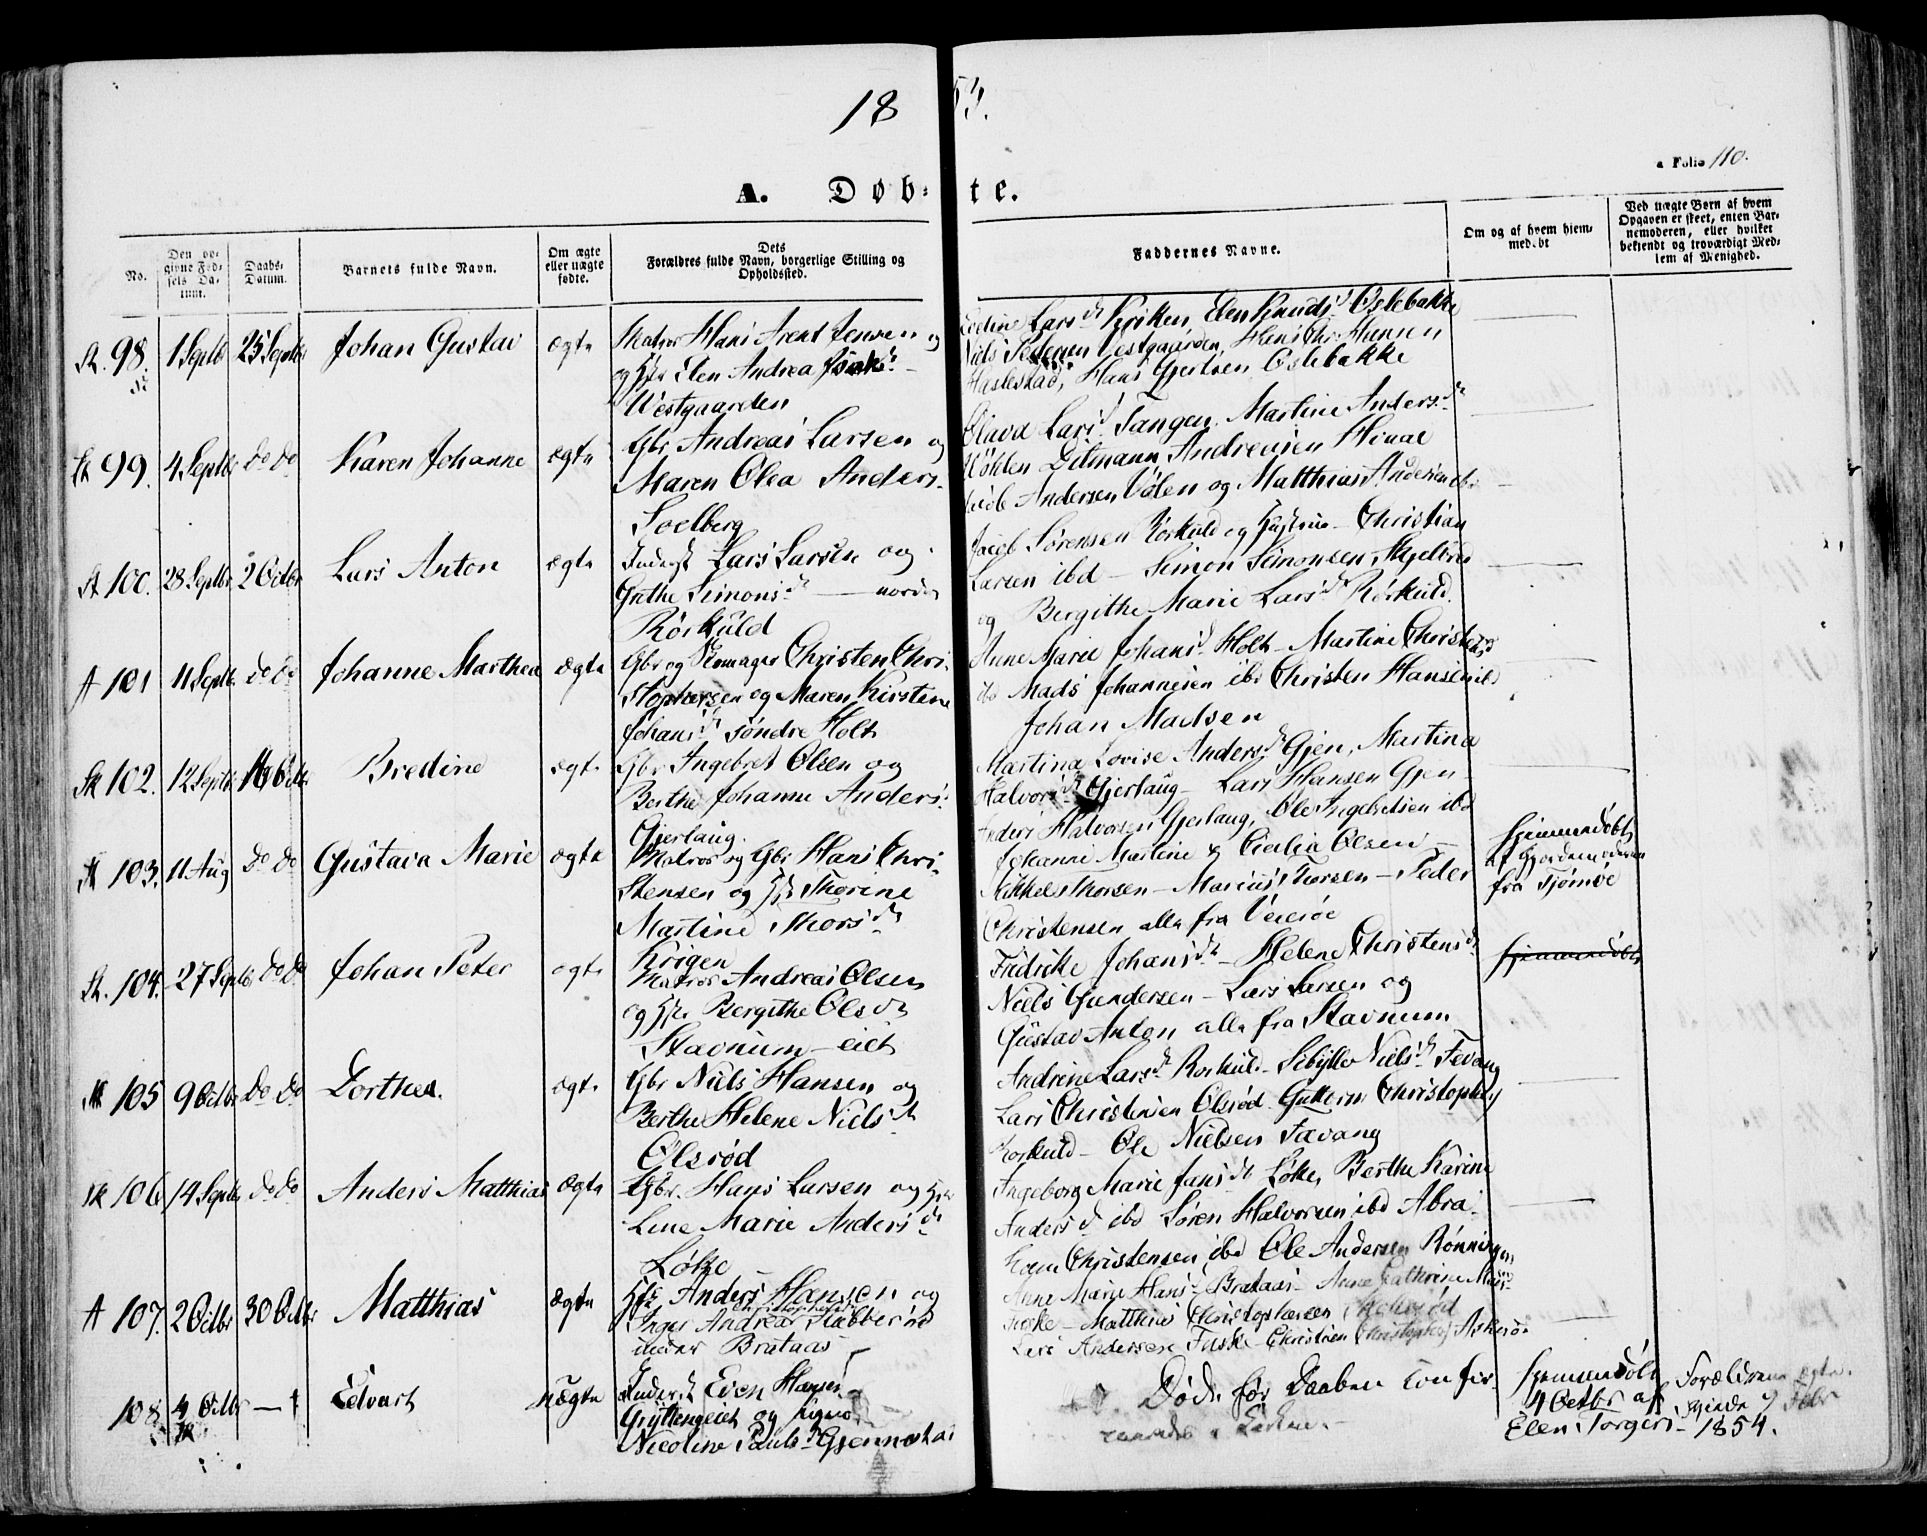 18 53.
a Folio 110.
A. Døb- te.
No.
Den opgivne Fødsels Datum.
Daabs-Datum.
Barnets fulde Navn.
Om ægte eller uægte fødte.
Dets Forældres fulde Navn, borgerlige Stilling og Opholdssted.
Faddernes Navne.
Om og af hvem hjemmedøbt
Ved uægte Børn af hvem Opgaven er skeet, enten Barnemoderen, eller hvilket bekjendt og troværdigt Medlem af Menighed.
98. 1 Septb 25 Septbr Johan Gustav ægte Matros Hans Arent Jensen og
og Hst Elen Andrea
Westgaarden
Larsd Kirken, Elen Knudsd Oslebakke
Niels Pedersen Vestgaarden, Hans Chr. Hansen
Haslestad, Hans Gjertsen Oslebakke
99. 4 Septbr do do Karen Johanne ægte Gbr Andreas Larsen og
Maren Olea Anders
Soelberg
Olava Larsd Tangen. Martine Andersd
Ditmann Andreasen
Andersen Vølen og Matthias Andersen ibd
St 100. 28 Septbr 2 Octbr Lars Anton ægte Inderst Lars Larsen og
Grethe Simonsd nordre
Rørkuld
Jacob Sørensen Rørkuld og Hustrue Christian
Larsen ibd Simon Simonsen
og Bergithe Marie Larsd Rørkuld.
A 101 11 Septb. do do Johanne Marthea ægte Gbr og Skomager Christen Chri-
stophersen og Maren Kirstine
Johansd søndre Holt
Anne Marie Johansd Holt Martine Christensd
ibd Mads Johannesen ibd Christen Hansen ibd
Johan Madsen
Sk 102. 12 Septbr 16 Octbr Bredine ægte Gbr Ingebret Olsen og
Berthe Johanne Anders
Gjerlaug.
Martina Lovise Andersd Gjen, Martina
Halvorsd Gjerlaug Lars Hansen Gjen
Anders Halvorsen Gjerlaug, Ole Ingebretsen ibd
103. 11 Aug do do Gustava Marie ægte Matros og Gbr Hans Chri-
stensen og Hst Thorine
Martine Thorsd
Krigen
Johanne Martine & Cecilia Olsen
Mikkel Thorsen Marcus Thorsen Peder
Christensen alle fra Veierøe
hjemmedøbt
af Gjordemoderen
fra Tjømøe
St. 104. 27 Septbr do do Johan Peter ægte Matros Andreas Olsen
og Hst Bergithe Olsd
Stavnum eiet
Fredrikke Johansd Helene Christensd
Niels Gundersen Lars Larsen og
Gustav Anton alle fra Stavnum
hjemmedøbt
105 9 Octbr do do Dorthea. ægte Gbr Niels Hansen og
Berthe Helene Nielsd
Olsrød
Andrine Larsd Rorkuld Sibylle Nielsd Fevang
Lars Christensen Olsrød Guttorm Christophers
Rorkuld Ole Nielsen Fævang
Sk 106 14 Septbr do do Anders Matthias ægte Gbr. Hans Larsen og Hst
Lene Marie Andersd
Løke
Ingeborg Marie Jansd Løke, Berthe Karine
Andersd ibd Søren Halvorsen ibd Abra-
ham Christensen ibd Ole Andersen Rønningen
A 107. 2 Octbr 30 Octbr Matthias ægte Anders Hansen og
Inger Andrea Christophersd
under Brataas
Anne Marie Hansd Brataas Anne Cathrine
Matthias Christophersen
Andersen Fuske Christen Christophers Askerød
108 4 Octbr — † Edvart uægte Inderst Even Hansen
Gryttengeiet og Pigen
Nicoline Paulsd Gjennestad
Døde før Daaben confir-
hjemmedøbt
4 Octbr af
Elen Torgers
Forældrene ægte-
viede 7 Febr
1854.